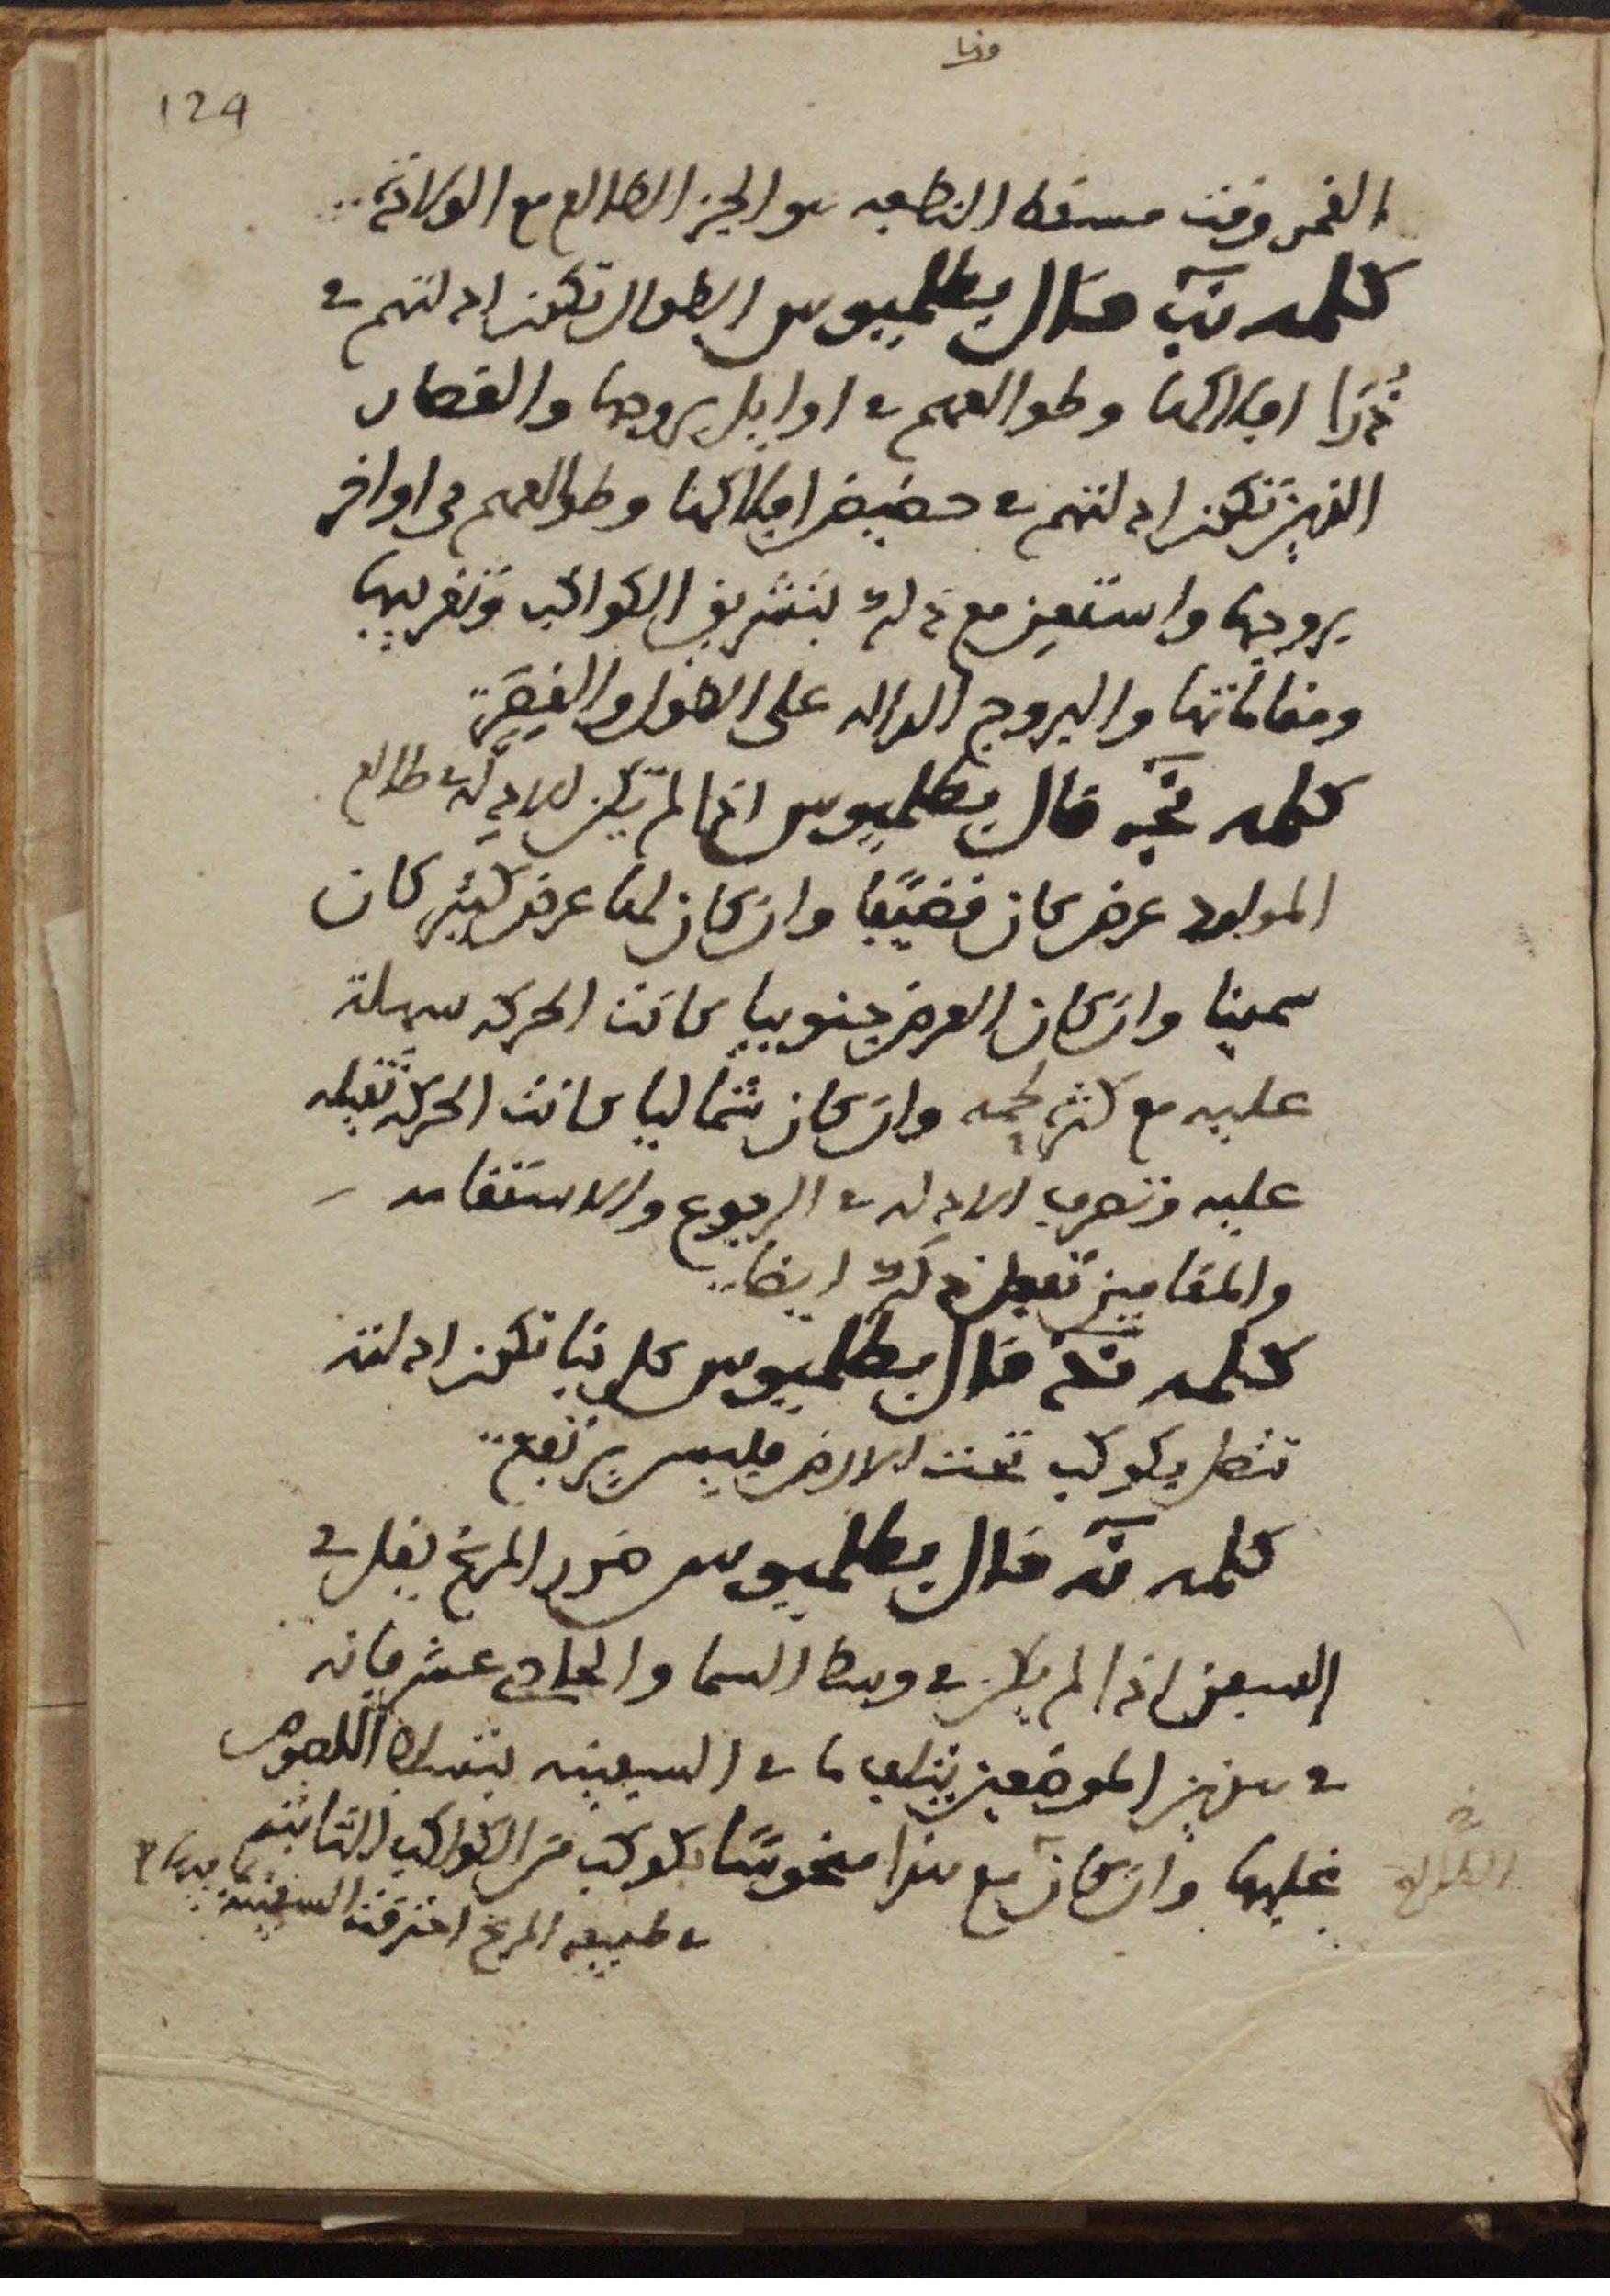 124
القمر وقت مسقط النطفه هو الجز الطالع مع الولادة
كلمه نب قال بطلميوس الطوال تكون ادلتهم في
ذرا افلاكها وطوالعهم في اوايل بروجها والقصار
الذين تكون ادلتهم في حضيض افلاكها وطوالعهم في اواخر
بروجها واستعن مع ذلك بتشريق الكواكب وتغريبها
ومقاماتها والبروج الداله على الطول والقصر
كلمه نج قال بطلميوس اذا لم تكن للادلة في طالع
المولود عرض كان قضيفا وان كان لها عرض كثير كان
سمينا وان كان العرض جنوبيا كانت الحركه سهلة
عليه مع كثرة لحمه وان كان شماليا كانت الحركة ثقيله
عليه وتصرف الادله في الرجوع والاستقامه
والمقامين تفعل ذلك ايضا
كلمه ند قال بطلميوس كل بنا تكون ادلته
تتصل بكوكب تحت الارض فليس يرتفع
كلمه نه قال بطلميوس ضرر المريخ يقل في
السفن اذا لم يكن في وسط السما والحادي عشر فانه
في هذين الموضعين يتلف ما في السفينه بتسلط اللصوص
عليها وان كان مع هذا منحوسا بكوكب من الكواكب الثابته
في طبيعه المريخ احترقت السفينه بما فيها
الطالع